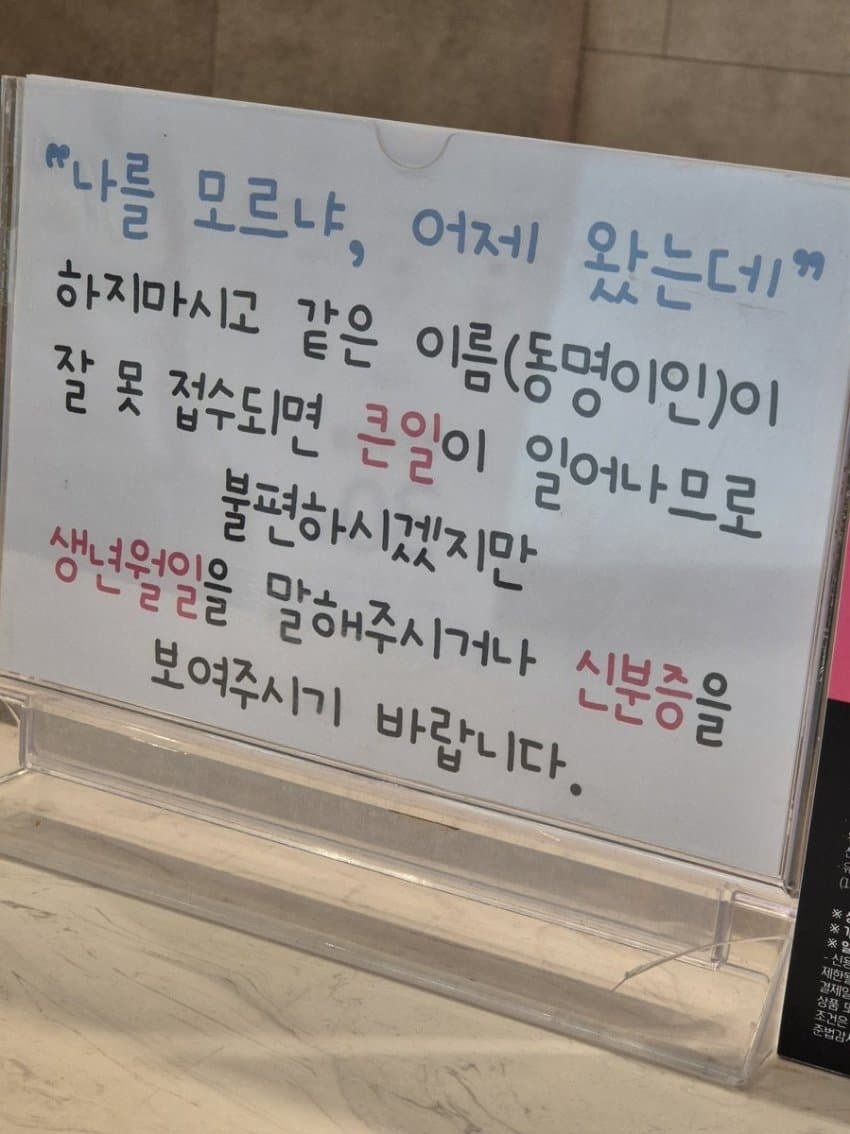 "나를 모르냐, 어제 왔는데"
하지마시고 같은 이름(동명이인)이
잘 못 접수되면 큰일이 일어나므로
불편하시겠지만
생년월일을 말해주시거나 신분증을
보여주시기 바랍니다.
※
※
※
- 신용
제한될
결제일
상품 또
조건은
준법감시